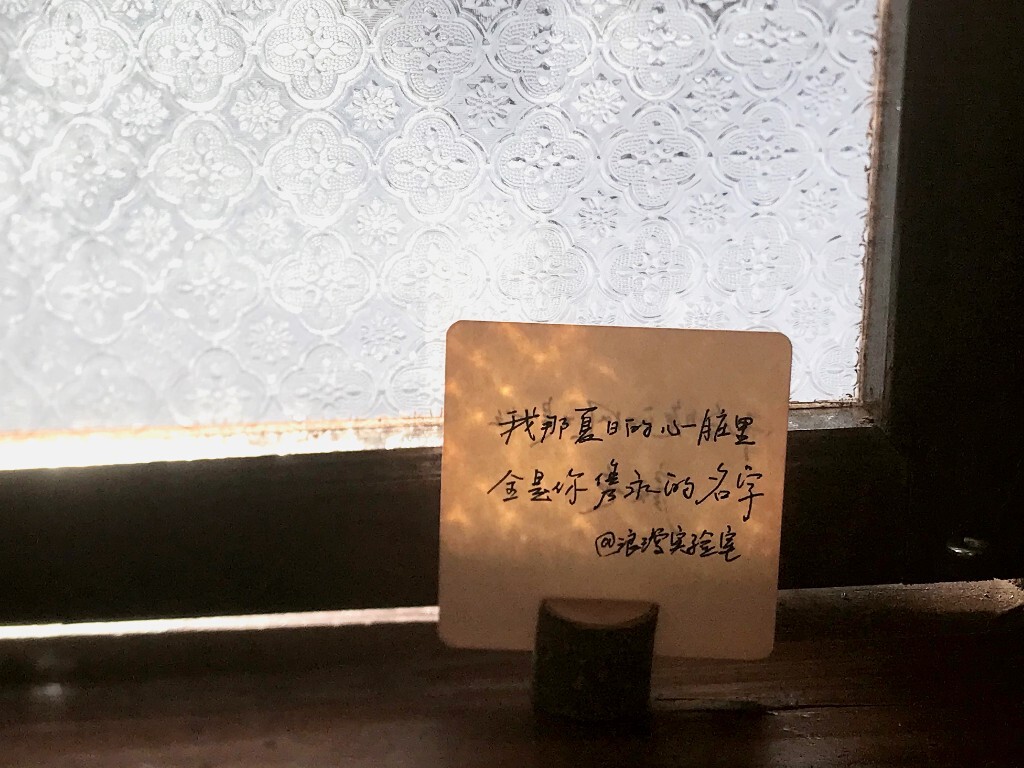 我那夏日的心脏里
全是你隽永的名字
@浪漫实验室